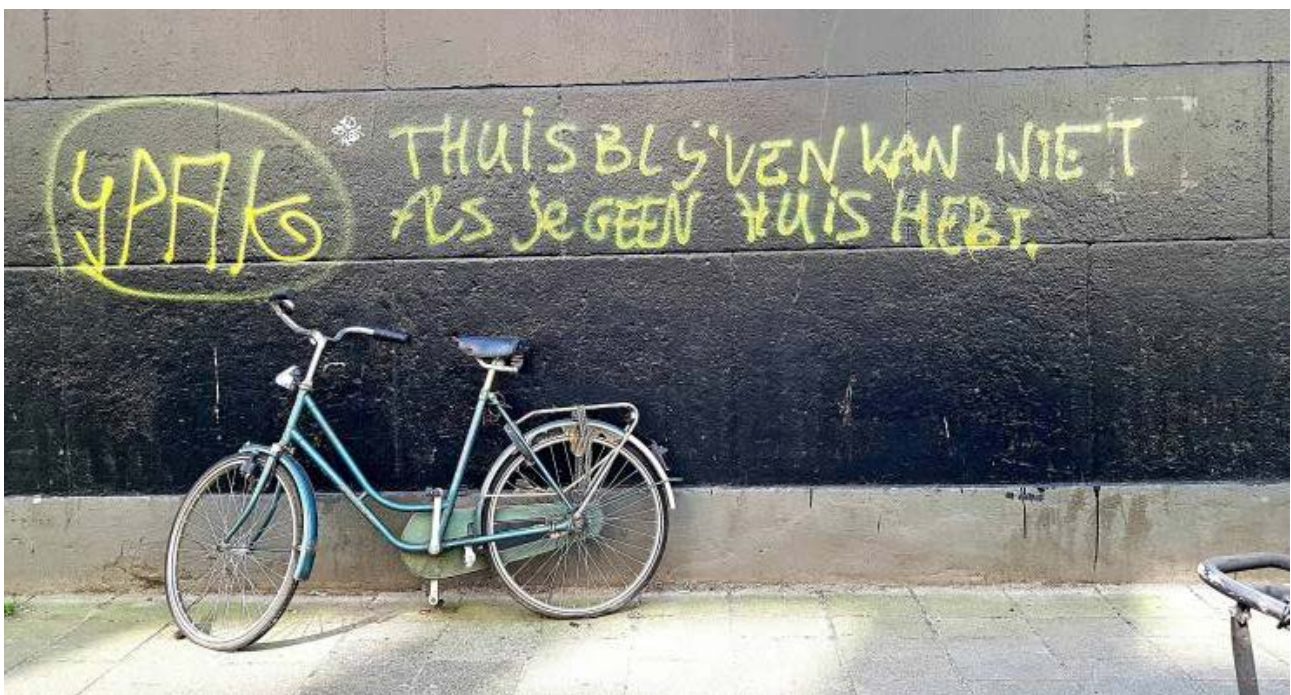 THUIS BLIJVEN KAN NIET
ALS je GEEN HUIS HEBT.